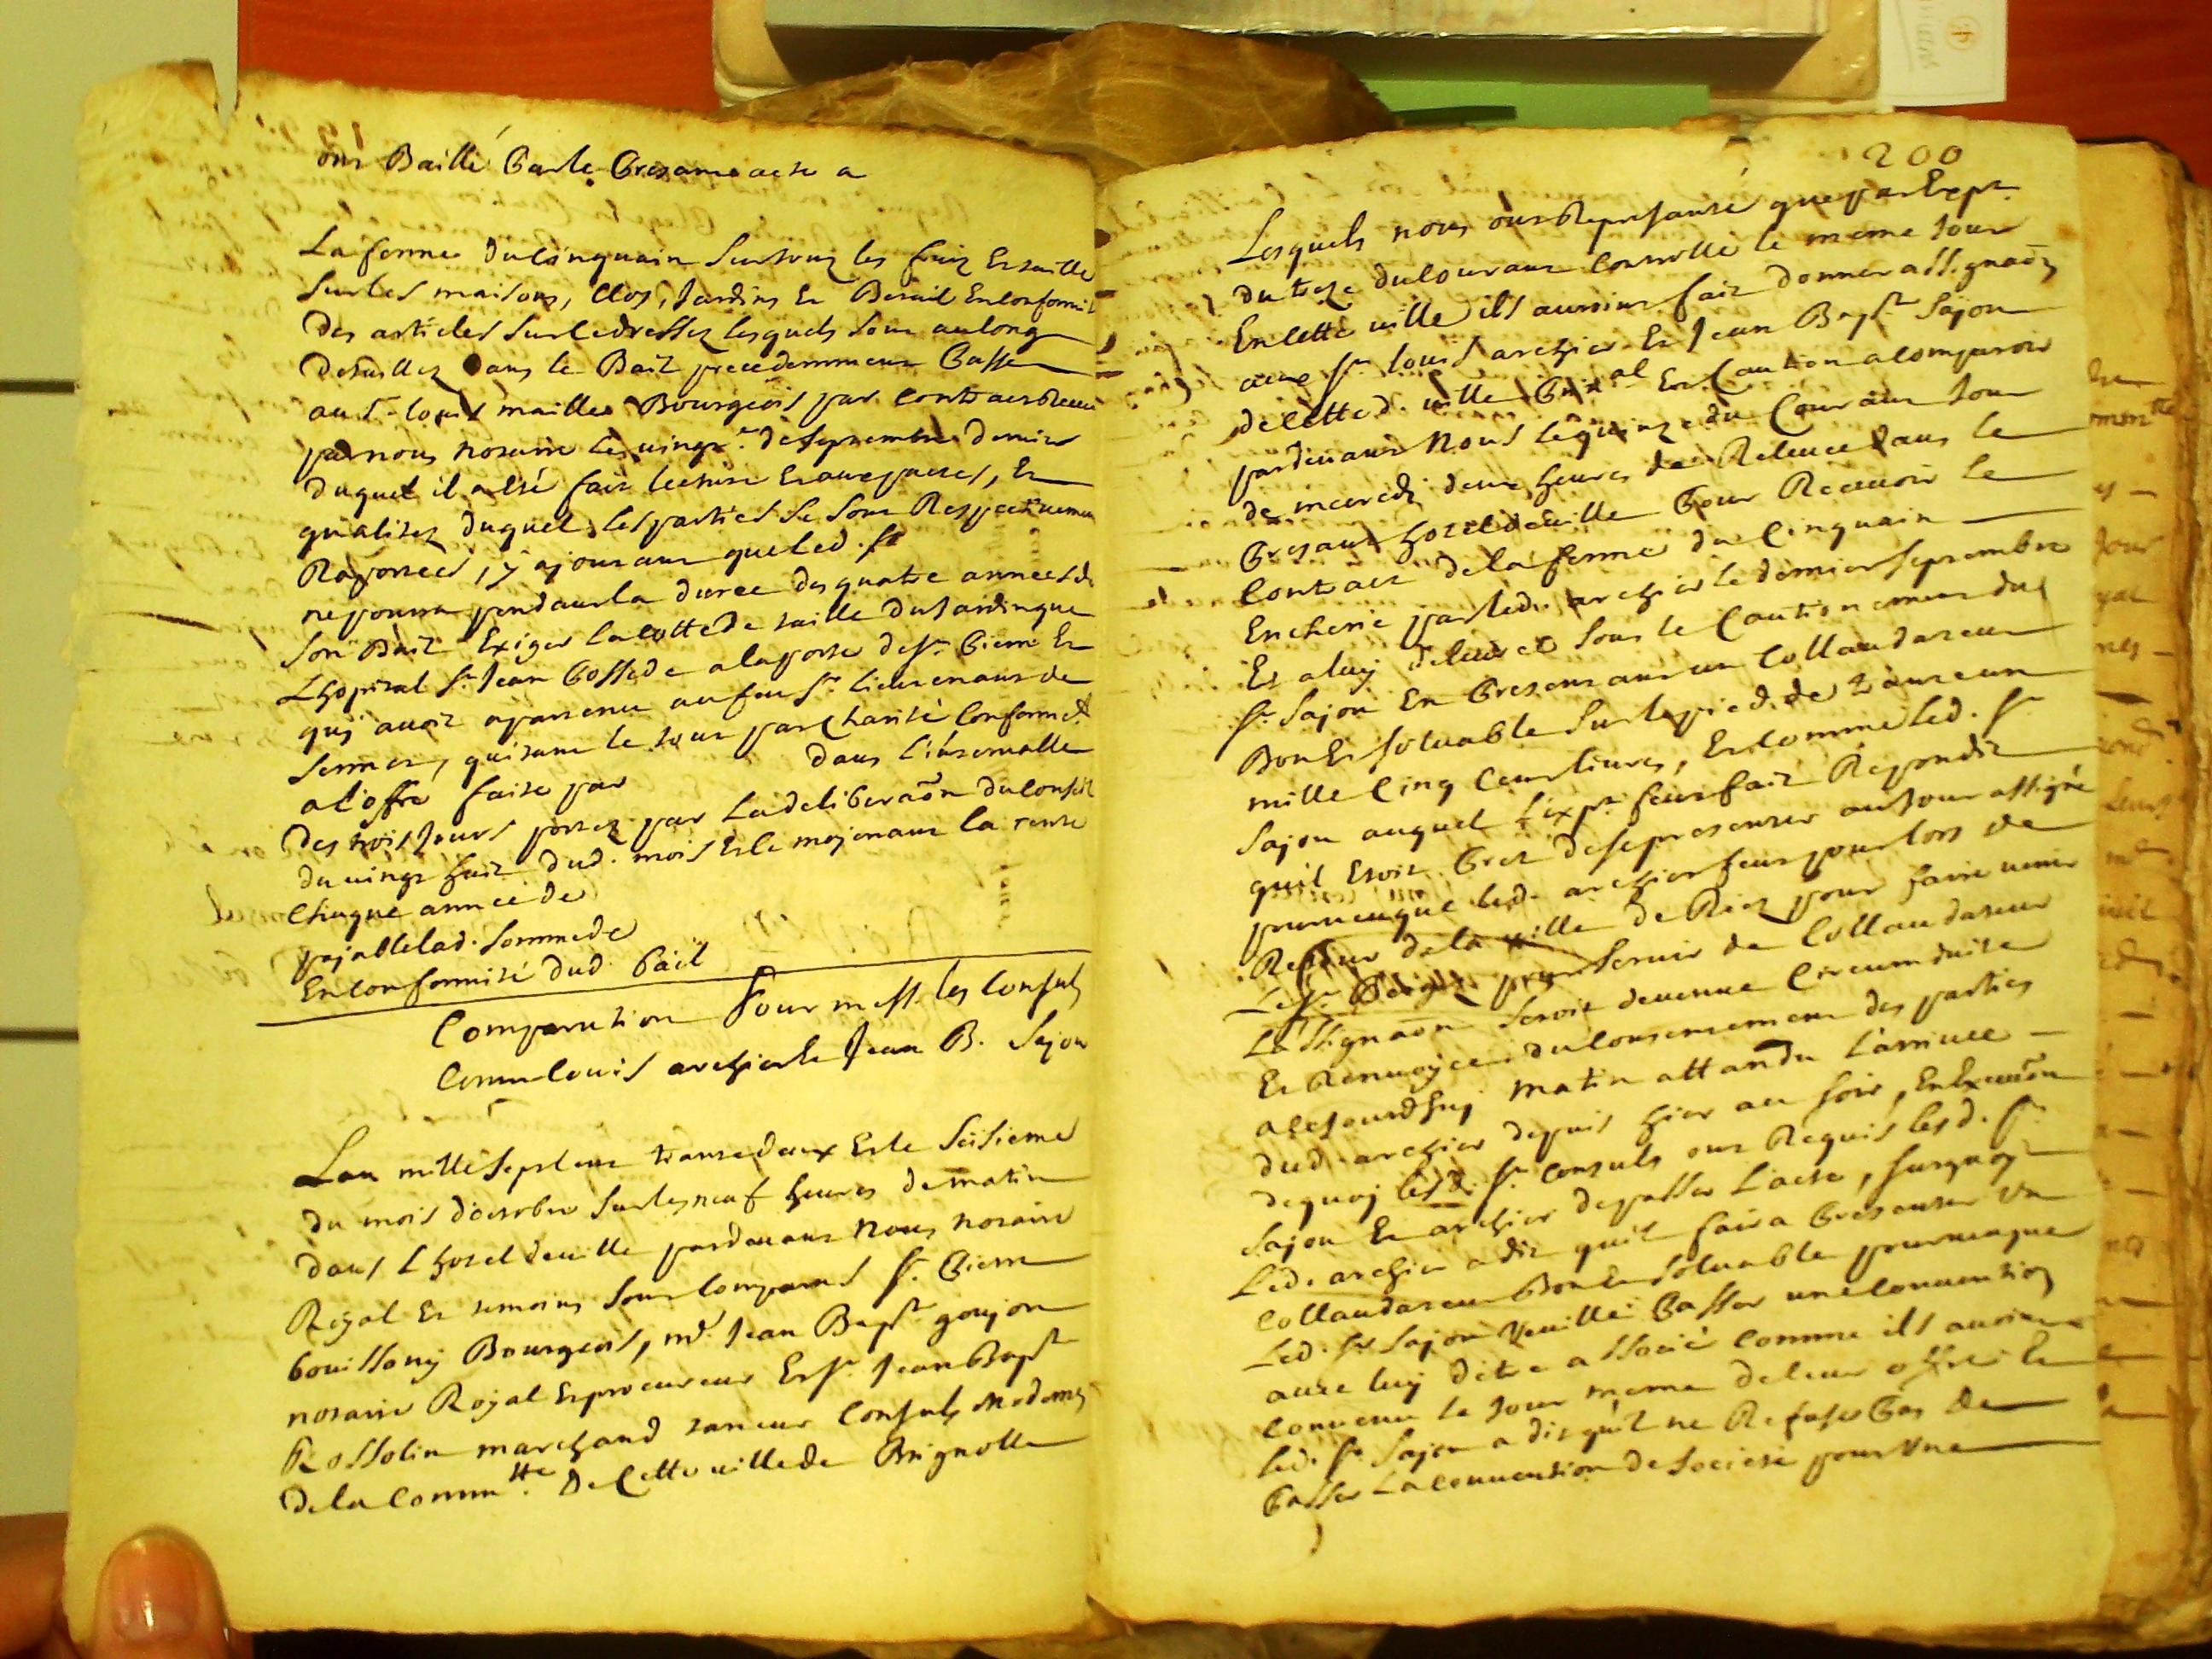 ont Baillé par le presant acte a
La ferme du cinquain sur tous les fruiz et taille
sur les maisons, clos, jardins et Betail en conformité
des articles sur ce dressez lesquels sont au long
detaillez dans le Bail precedemment passé
au Sr louis maille Bourgeois par contract receu
par nous notaire le vingt de septembre dernier
duquel il a esté fait lecture et aux parties, et
qualitez duquel les parties se sont Respectivement
Raportées, y ajoutant que led. sr
ne pourra pendant la durée des quatre années de
son Bail Exiger la cotte de taille du jardin que
L'hopital St Jean possede a la porte de St Pierre et
quj avoit apartenu au feu Sr lieutenant de
le tout par charité conformet
a l'offre faite par dans l'intervalle
des trois jours portez par La deliberaôn du conseil
du vingt huit dud. mois et le mojenant la rente
chaque année de
pajable lad. somme de
En conformité dud. bail
Comparution Pour mess. les consuls
Contre louis archier et Jean B. Sajou
Lan mille sept cent trante deux et le seisieme
du mois d'octobre sur les neuf heures de matin
dans L'hotel de ville pardevant nous notaire
Royal et temoins sont comparus sr Pierre
bouissony Bourgeois, me Jean Bapt goujon
notaire Royal et procureur et sr Jean Bapt
Rossolin marchand taneur Consuls modernes
de la commte De Cette ville de Brignolle
200
Lesquels nous ont Representé que par Expt
du treze du courant controllé le meme jour
En cette ville ils auroint fait donner assignaôn
aux srs louis archier et Jean Bapt Sajou
de cette d. ville Pnal et caution a comparoir
pardevant Nous le quinze du Courant jour
de mecredj deux heures de Relevée dans le
presant hotel de ville pour Recevoir le
contract de la ferme du Cinquain
Encherie par led. archier le dernier septembre
Et a luy delivrée sous le Cautionement dud
sr Sajou En presentant un Collaudateur
Bon et solvable sur le pied de trante un
mille cinq cent livres, et comme led. sr
Sajou auquel l'expt feut fait Repondit
quil Etoit Prest de se presenter au jour assigné
pourveu que led. archier feut pour lors de
Retour de la ville de Riez pour faire venir
Le sr pour servir de Collaudateur
L'assignaôn seroit devenue Circumduite
et Renvoyée du consentement des parties
a cejourdhuj matin attandu L'arrivée
dud. archier depuis hier au soir, En Execuôn
de quoj lesd. srs consuls ont Requis lesd. srs
Sajou et archier de passer L'acte, surquoy
Led. archier a dit quil faira presenter un
collaudateur Bon et solvable pourveu que
Led. sr Sajou veuille passer une convention
avec luy d'etre associé comme ils avoint
convenu le jour meme de leur offre et
led. sr Sajou a dit qu'il ne Refuse pas de
passer La convention de societé pour une